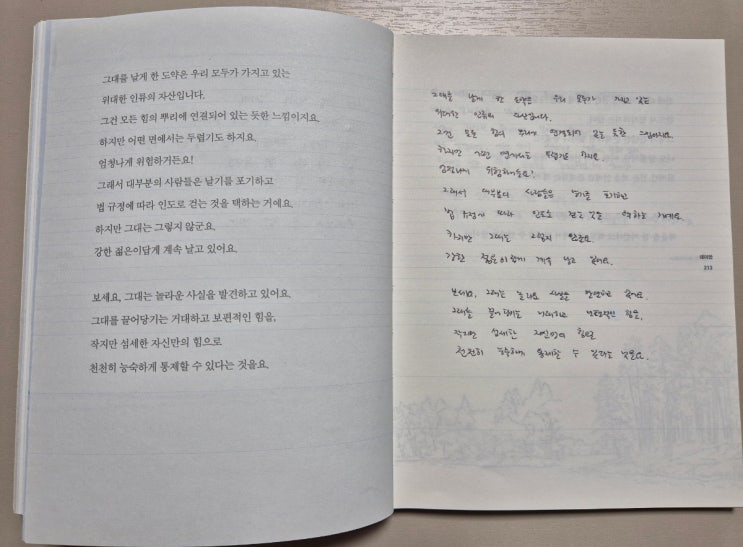 그대를 날게 한 도약은 우리 모두가 가지고 있는
위대한 인류의 자산입니다.
그건 모든 힘의 뿌리에 연결되어 있는 듯한 느낌이지요.
하지만 어떤 면에서는 두렵기도 하지요.
엄청나게 위험하거든요!
그래서 대부분의 사람들은 날기를 포기하고
법 규정에 따라 인도로 걷는 것을 택하는 거예요.
하지만 그대는 그렇지 않군요.
강한 젊은이답게 계속 날고 있어요.
보세요, 그대는 놀라운 사실을 발견하고 있어요.
그대를 끌어당기는 거대하고 보편적인 힘을,
작지만 섬세한 자신만의 힘으로
천천히 능숙하게 통제할 수 있다는 것을요.
그대를 날게 한 도약은 우리 모두가 가지고 있는
위대한 인류의 자산입니다.
그건 모든 힘의 뿌리에 연결되어 있는 듯한 느낌이지요.
하지만 어떤 면에서는 두렵기도 하지요.
엄청나게 위험하거든요!
그래서 대부분의 사람들은 날기를 포기하고
법 규정에 따라 인도로 걷는 것을 택하는 거예요.
하지만 그대는 그렇지 않군요.
강한 젊은이답게 계속 날고 있어요.
데미안
213
보세요, 그대는 놀라운 사실을 발견하고 있어요.
그대를 끌어당기는 거대하고 보편적인 힘을,
작지만 섬세한 자신만의 힘으로
천천히 능숙하게 통제할 수 있다는 것을요.